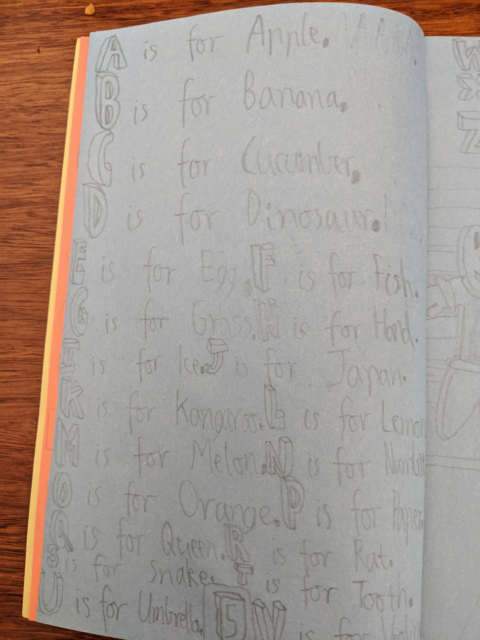 A is for Apple.
B is for Banana.
C is for Cucumber.
D is for Dinosaur.
E is for Egg. F is for Fish.
G is for Grass. H is for Hand.
I is for Ice. J is for Japan.
K is for Kangaroo. L is for Lemon
M is for Melon. N is for
O is for Orange. P is for Paper
Q is for Queen. R is for Rat.
S is for snake. T is for Tooth.
U is for Umbrella. 5 V is for
W
X
Z